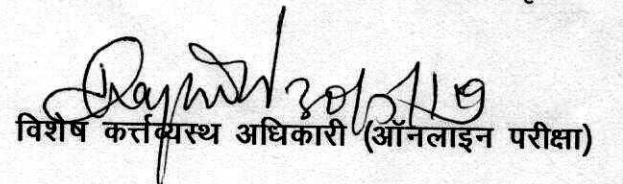 30/5/19
विशेष कर्त्तव्यस्थ अधिकारी (ऑनलाइन परीक्षा)